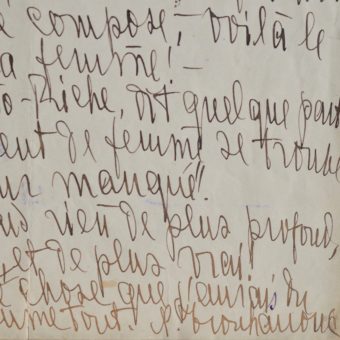 é compose, – voilà le
a femme! –
-Riche, dit quelque part
ent de femme se trouve
ur manqué".
rien de plus profond,
et de plus vrai
chose que j'aurais dû
tout.